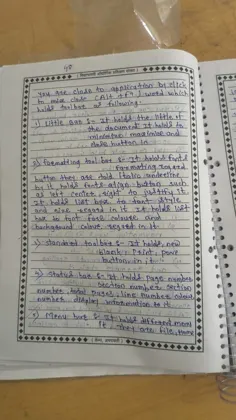 48
you are close to application by click
to use close (Alt + F4) word which
holds toolbar as following.
1) Title bar :- It holds the title of
the document. It holds to
minimize maximize and
button in
2) formatting tool bar :- It holds font
formatting regard
button they are bold italic underline
as left center right to justifying it
It holds list box to font style
and size regard in it It holds list
box to font colour and
background colour regard in it.
3) standard tool bar :- It holds new
button in it.
4) status bar :- It holds page number
section number section
number, total pages, line number column
number display information to it
5) Menu bar :- It holds different menu
It, They are file, Home